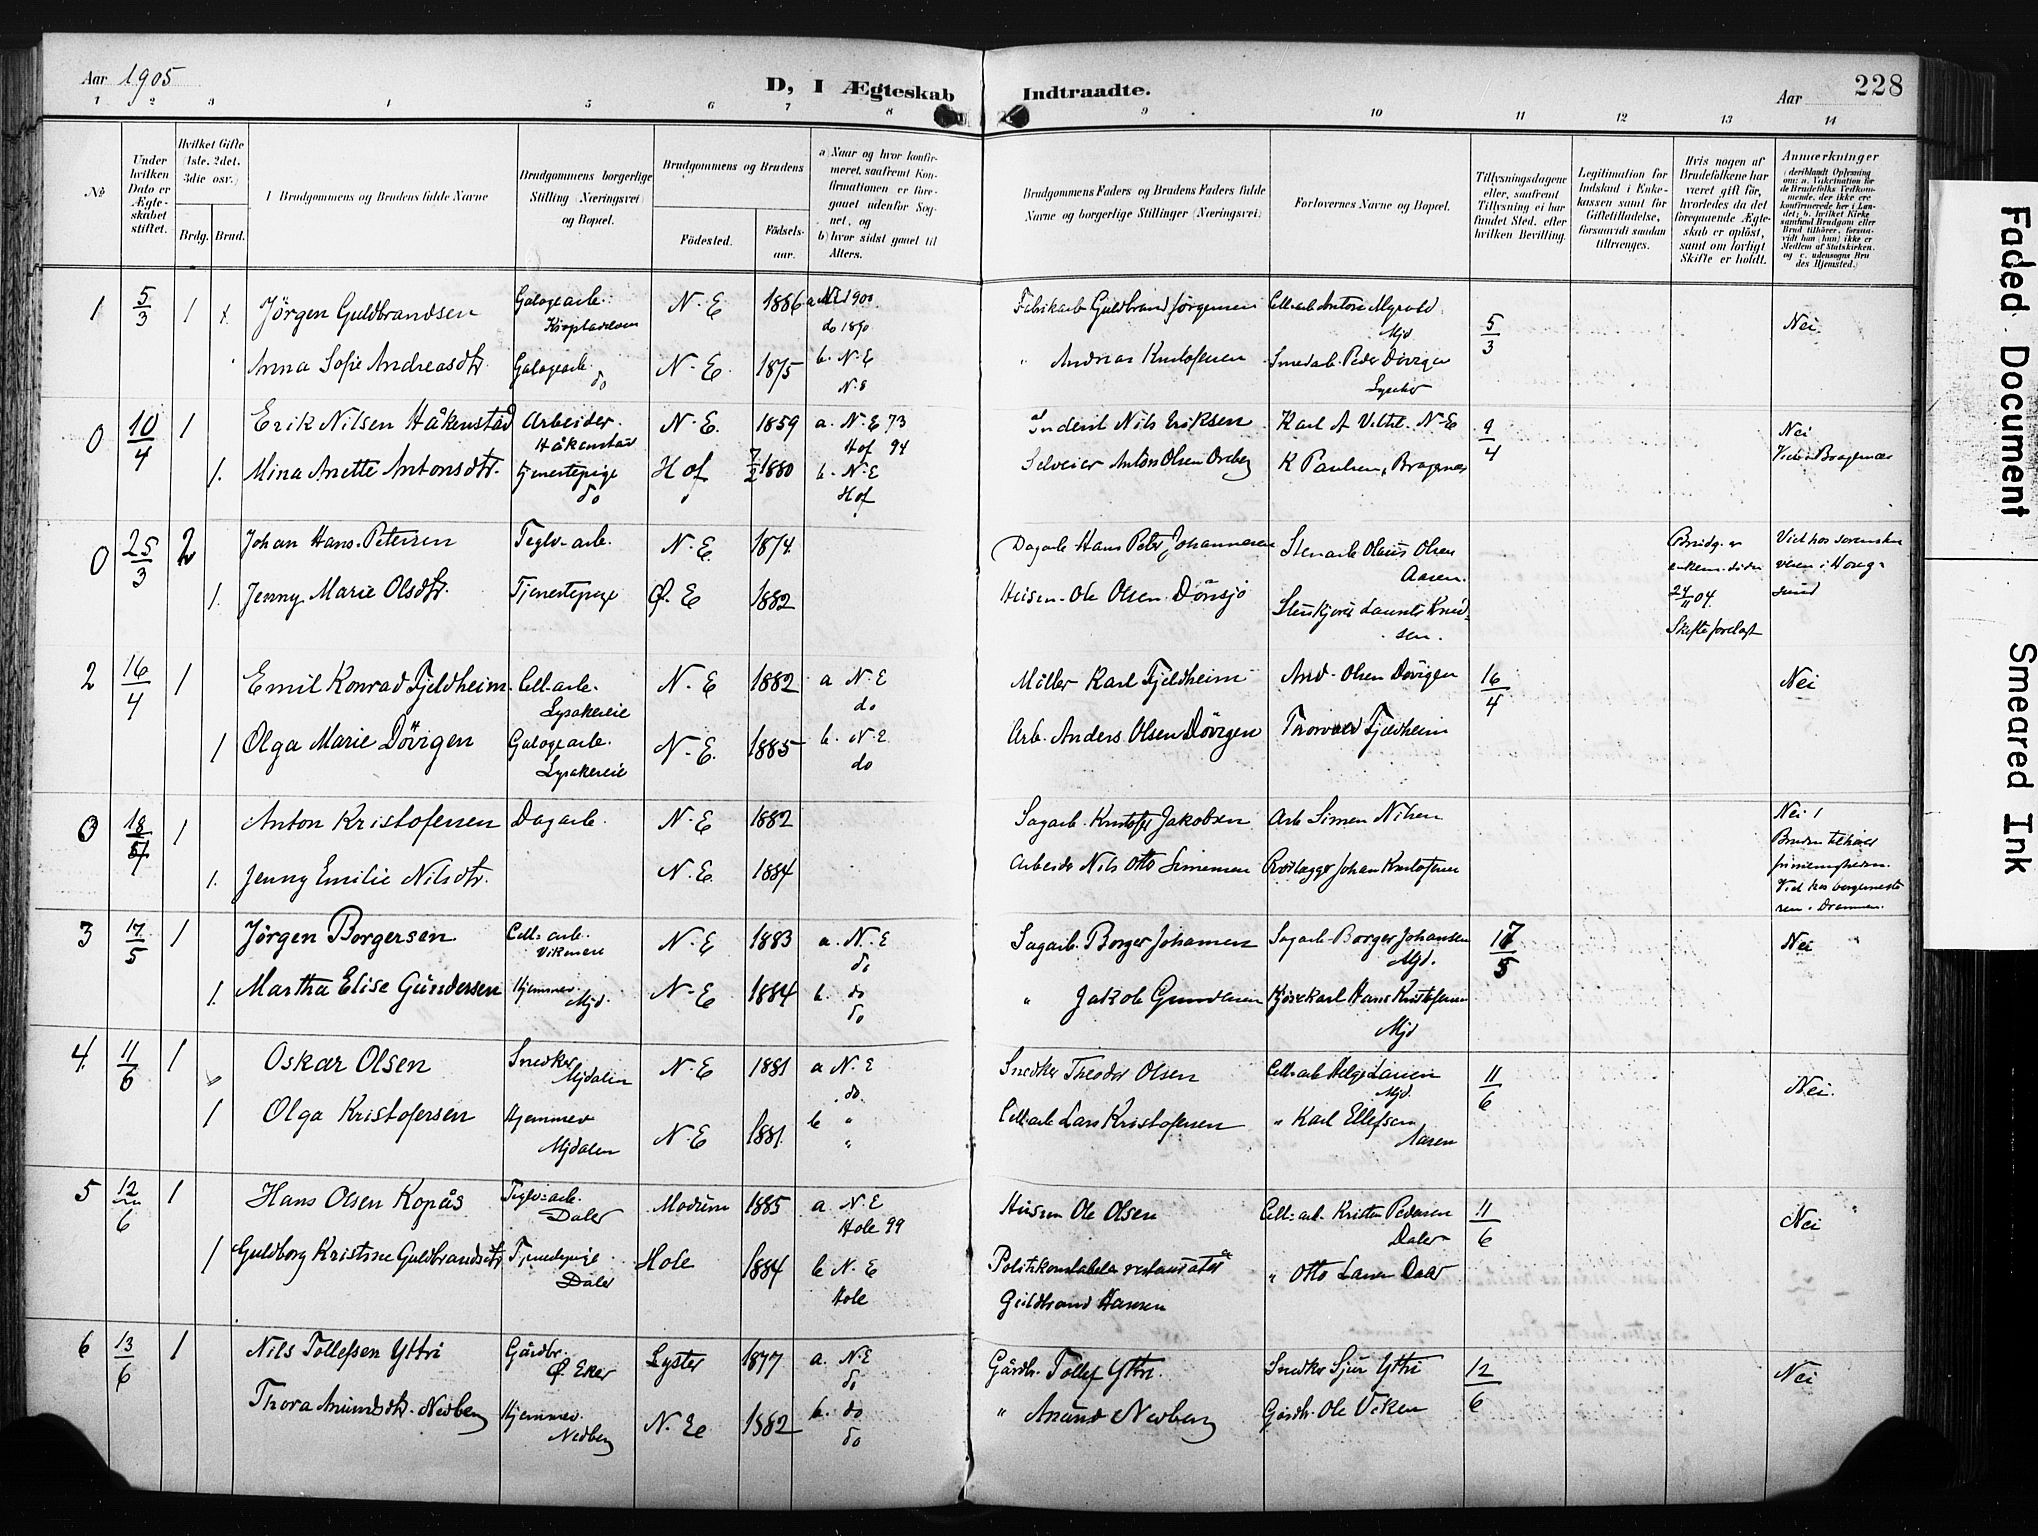 Aar 1905
D, I Ægteskab Indtraadte.
Aar 228
1 2 3 4 5 6 7 8 9 10 11 12 13 14
No
Under hvilken Dato er Ægteskabet stiftet.
Hvilket Gifte (1ste. 2det. 3die osv.)
Brdg. Brud.
Brudgommens og Brudens fulde Navne
Brudgommens borgerlige Stilling (Næringsvei) og Bopæl.
Brudgommens og Brudens
Fødested.
Fødselsaar.
a) Naar og hvor konfirmeret, saafremt Konfirmationen er foregaaet udenfor Sognet, og
b) hvor sidst gaaet til Alters.
Brudgommens Faders og Brudens Faders fulde Navne og borgerlige Stillinger (Næringsvei)
Forlovernes Navne og Bopæl.
Tillysningsdagene eller, saafremt Tillysning ei har fundet Sted, efter hvilken Bevilling.
Legitimation for Indskud i Enkekassen samt for Giftetilladelse, forsaavidt saadan tiltrænges.
Hvis nogen af Brudefolkene har været gift før, hvorledes da det foregaaende Ægteskab er opløst, samt om lovligt Skifte er holdt.
Anmærkninger
(deriblandt Oplysning om: a. Vakcination for de Brudefolks Vedkommende, der ikke ere konfirmerede her i Landet; b. hvilket Kirkesamfund Brudgom eller Brud tilhører, forsaavidt han (hun) ikke er Medlem af Statskirken, og c. udensogns Brudes Hjemsted.)
1 5/3 1 Jörgen Guldbrandsen Galogearb. N. E 1886 Fabrikarb Guldbrand Jörgensen Cell-arb Anton Myrvold Mjd 5/3 Nei
Anna Sofie Andreasdtr. Galogearb. do N. E. 1875 b. N. E " Andreas Kristofersen
0 10/4 1 Erik Nilsen Håkenstad Arbeider. Håkenstad N. E. 1859 a. N. E 73 Hof 94 Inderst Nils Eriksen 9/4 Nei
1. Mina Anette Antonsdtr. tjenestepige do Hof 7/2 1880 b. N. E Hof Selveier Anton Olsen K Paulsen, Bragernæs
0 25/3 2 Johan Hans. Petersen Teglv-arb. N. E. 1874 Dagarb Hans Peter Johannesen Stenarb Olaus Olsen Aasen. Brudg. er
1. Jenny Marie Olsdtr. Tjenestepige Ø. E 1882 Husm. Ole Olsen 24/11 04.
2 16/4 1 Emil Konrad Fjeldheim Cell-arb. Lysakereie N. E 1882 a N. E do Möller Karl Fjeldheim And. Olsen Dövigen 16/4 Nei
1 Olga Marie Dövigen Galogearb. Lysakereie N. E. 1885 b. N. E do Arb. Anders Olsen Dövigen Fjeldheim
0 18/4 1 Anton Kristofersen Dagarb. N. E 1882 Sagarb. Kristofer Jakobsen Arb Simen Nilsen Nei
1. Jenny Emilie Nilsdtr. N. E 1884 Arbeider Nils Otto Simensen Johan Kristofersen
3 17/5 1 Jörgen Borgersen Cell: arb. N. E 1883 a. N. E do Sagarb. Borger Johansen Sagarb. Borger Johansen Mjd. 17/5 Nei
1. Martha Elise Gundersen Hjemmev. Mjd. N. E 1884 b. do do " Jakob Gundersen Kjörekarl Hans Kristofersen Mjd
4. 11/6 1 Oskar Olsen Snedker Mjdalen N. E 1881 a N. E do. Snedker Theodor Olsen Cell-arb Helge Larsen Mjd. 11/6 Nei.
1 Olga Kristofersen Hjemmev Mjdalen N. E 1881 b " " Cell-arb Lars Kristofersen " Karl Ellefsen Aasen
5 12/6 1 Hans Olsen Kopås Teglv-arb. Daler Modum 1885 a N. E Hole 99 Husm Ole Olsen Cell: arb. Kristen Pedersen Daler 11/6 Nei
1 Guldborg Kristine Guldbrandsdtr Tjenestepige Daler Hole 1884 b N. E Hole Politikonstabel Guldbrand Hansen " Otto Larsen Daler
6 13/6 1 Nils Tollefsen Yttri Gårdbr. Ø. Eker Lyster 1877 a. N. E do Gårdbr. Tollef Yttri. Snedker Sjur Yttri 12/6 Nei
Thora Amundsdtr. Nedberg Hjemmev. Nedberg N. E. 1882 b. do do " Amund Nedberg Gårdbr. Ole Viken
Faded Document
Smeared Ink